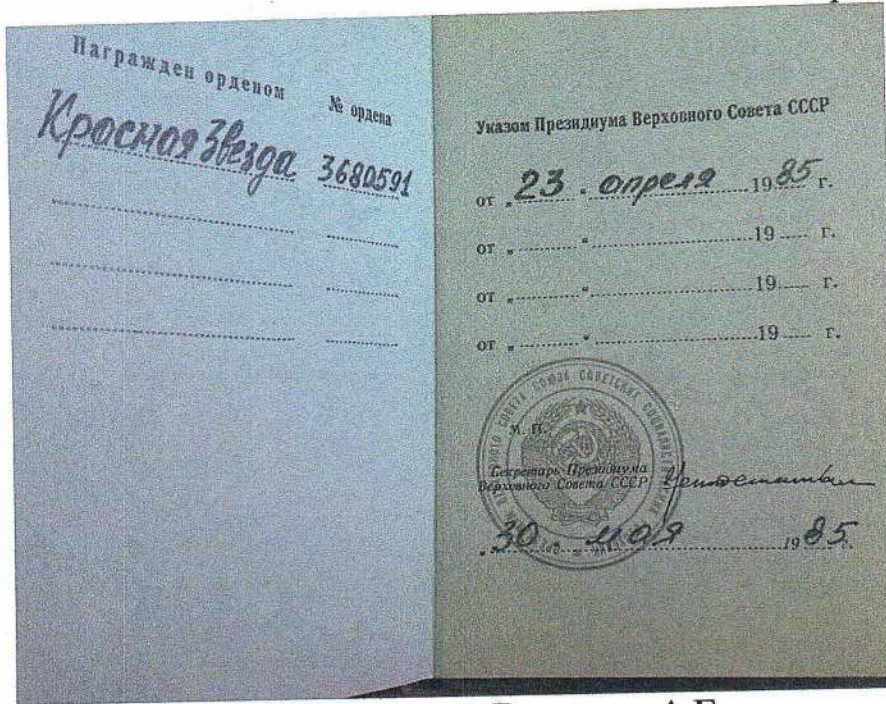 Награжден орденом № ордена
Красная Звезда 3680591
Указом Президиума Верховного Совета СССР
от „23“ апреля 1985 г.
от „ “ 19 г.
от „ “ 19 г.
от „ “ 19 г.
М. П.
Секретарь Президиума
Верховного Совета СССР
„30“ мая 1985 г.